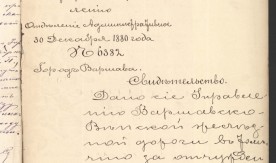 лению
Отдѣленіе Административное
30 Декабря 1880 года
№ 6332
Городъ Варшава.
Свидѣтельство.
Дано сіе Правле-
нію Варшавско-
Вѣнской желѣз-
ной дороги въ
за отчужден